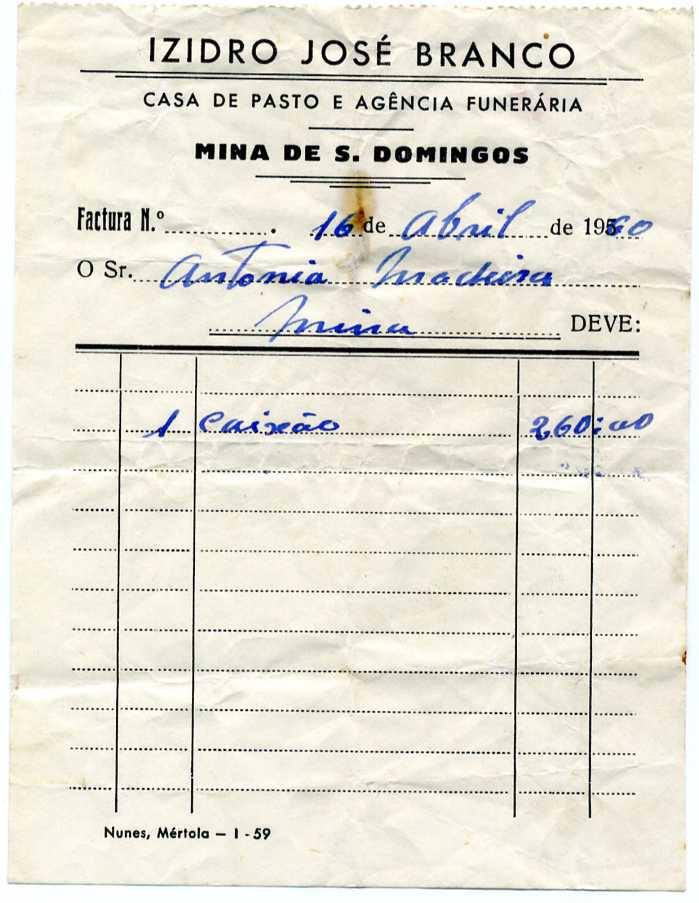 IZIDRO JOSÉ BRANCO
CASA DE PASTO E AGÊNCIA FUNERÁRIA
MINA DE S. DOMINGOS
Factura N.º . 16 de Abril de 1960
O Sr. Antonia Madeira
Mina DEVE:
1 Caixão 260:00
Nunes, Mértola — I - 59